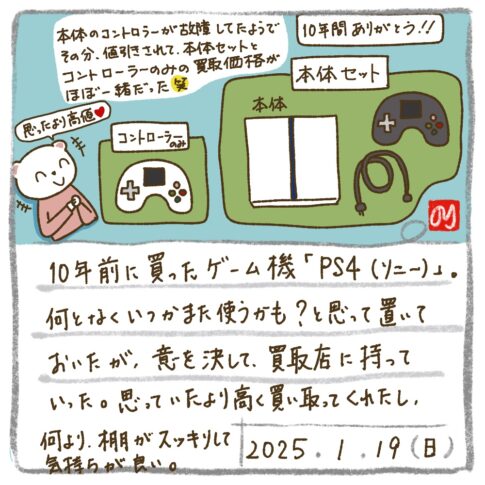 本体のコントロラーが故障してたようで
その分、値引きされて、本体セットと
コントローラーのみの買取価格が
ほぼ一緒だった 笑
10年間ありがとう!!
本体セット
本体
思ったより高値
コントローラー
のみ
10年前に買ったゲーム機「PS4(ソニー)」。
何となくいつかまた使うかも?と思って置いて
おいたが、意を決して、買取店に持って
いった。思っていたより高く買い取ってくれたし、
何より、棚がスッキリして
気持ちが良い。
2025.1.19(日)